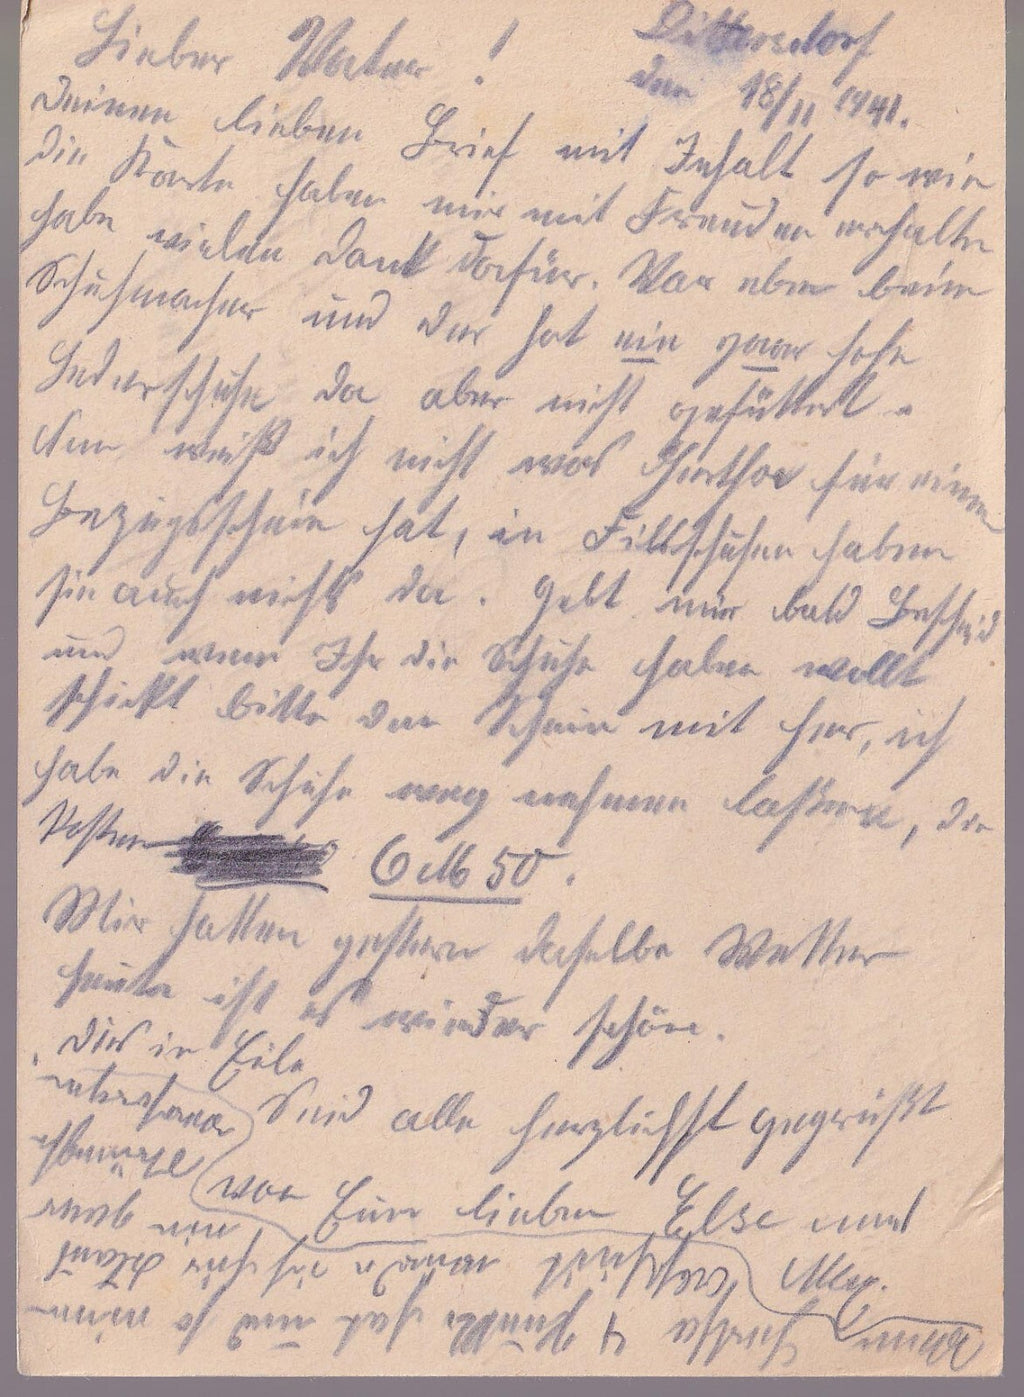 Lieber Vater!
Dittersdorf
den 18/11 1941.
Deinen lieben Brief mit Inhalt so wie
die Karte haben wir mit Freuden erhalten
habe vielen Dank dafür. War eben beim
Schuhmacher und der hat ein paar hohe
Lederschuhe da aber nicht gefüttert.
Nun weiß ich nicht was Hertha für einen
Bezugsschein hat, in Filzschuhen haben
sie auch nichts da. Gebt mir bald Bescheid
und wenn Ihr die Schuhe haben wollt
schickt bitte den Schein mit her, ich
habe die Schuhe weg nehmen laßen, die
Kosten 6 M 50.
Wir hatten gestern daselbe Wetter
heute ist es wieder schön.
Dies in Eile
Seid alle herzlichst gegrüßt
von Eure lieben Else und
Max.
Wenn Hertha 4 Punkte hat und so einen
ich hier
ein paar
Strümpfe